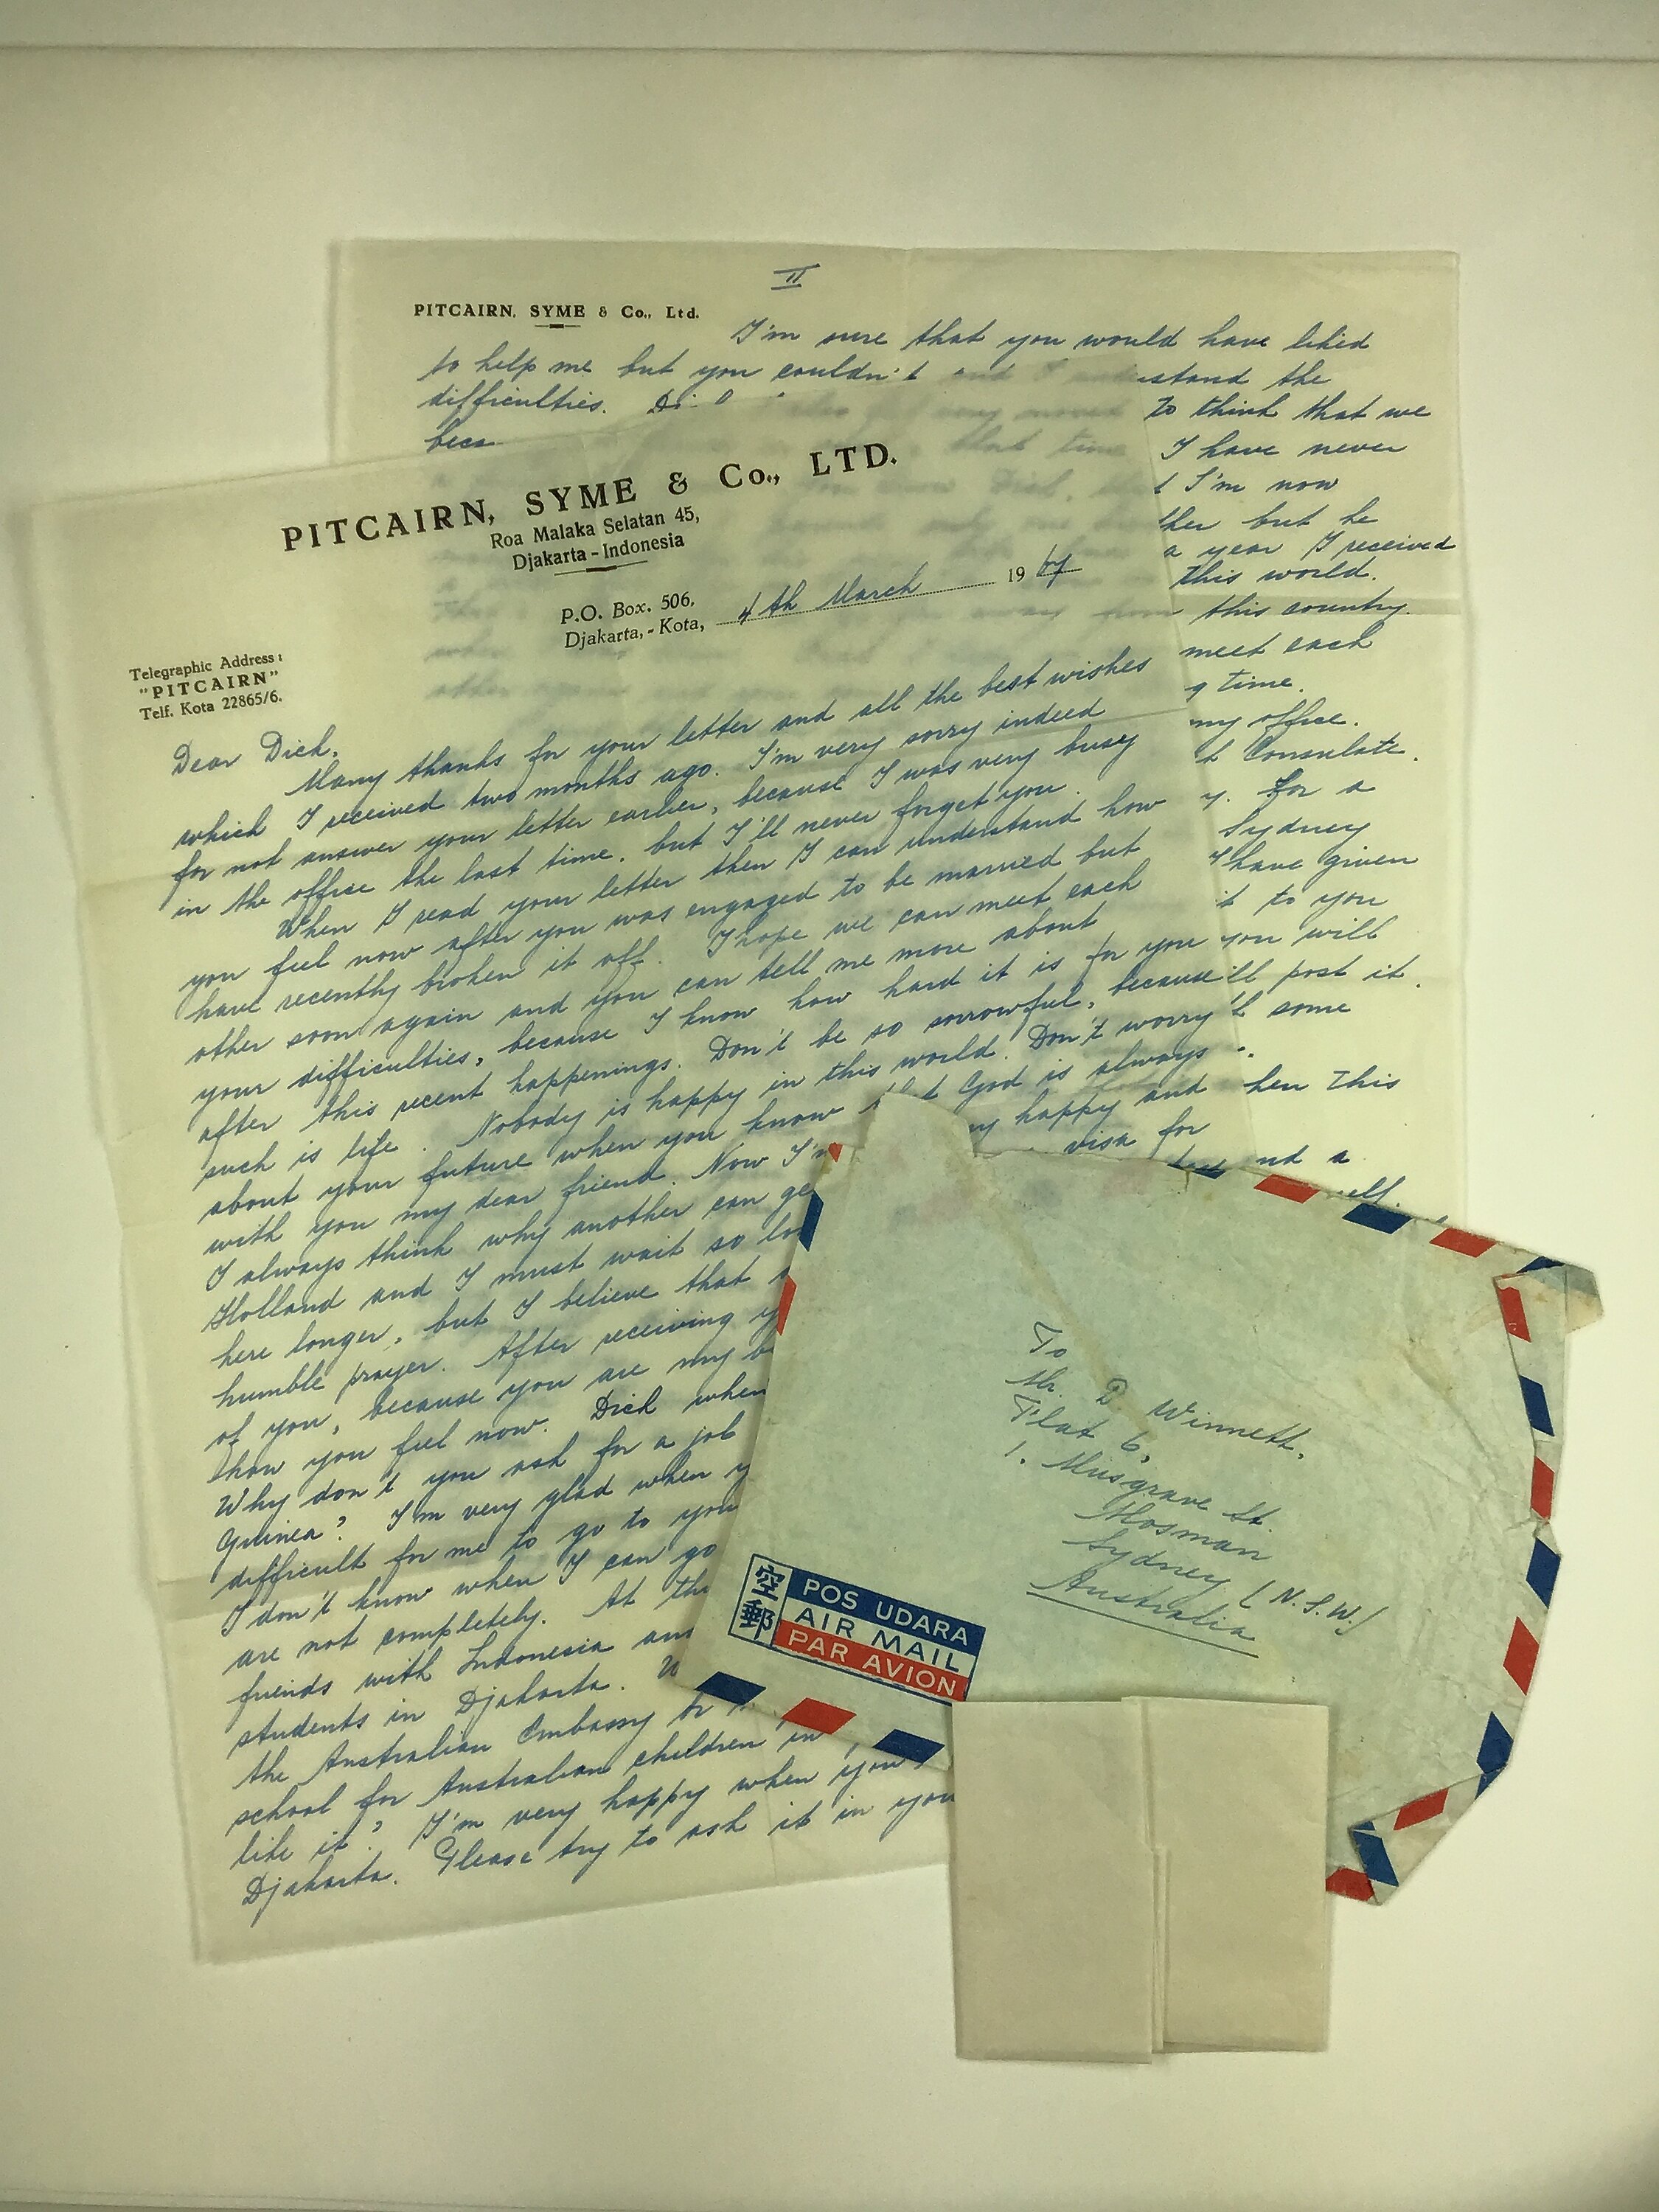 II
PITCAIRN, SYME & Co., Ltd.
I'm sure that you would have liked
to help me but you couldn't and I understand the
difficulties.
beca
to think that we
I have never
t I'm now
ther but he
a year I received
this world.
this country.
meet each
g time.
my office.
t Consulate.
y. For a
Sydney
I have given
it to you
you will
'll post it.
't some
hen This
nd a
elf.
PITCAIRN, SYME & Co., LTD.
Roa Malaka Selatan 45,
Djakarta - Indonesia
P.O. Box. 506,
Djakarta, - Kota, 4th March 19
Telegraphic Address:
"PITCAIRN"
Telf. Kota 22865/6.
Dear Dick,
Many thanks for your letter and all the best wishes
which I received two months ago. I'm very sorry indeed
for not answer your letter earlier, because I was very busy
in the office the last time, but I'll never forget you.
When I read your letter then I can understand how
you feel now after you was engaged to be married but
have recently broken it off. I hope we can meet each
other soon again and you can tell me more about
your difficulties, because I know how hard it is for you
after this recent happenings. Don't be so sorrowful, because
such is life. Nobody is happy in this world. Don't worry
about your future when you know that God is always
with you my dear friend. Now I'm happy and
I always think why another can ge visa for
Holland and I must wait so lo
here longer, but I believe that
humble prayer. After receiving y
of you, because you are my b
how you feel now. Dick when
Why don't you ask for a job
Guinea? I'm very glad when y
difficult for me to go to you
I don't know when I can go
are not completely. At th
friends with Indonesia and
students in Djakarta. W
the Australian Embassy or
school for Australian children in
like it? I'm very happy when you
Djakarta. Please try to ask it in you
To
Mr. D. Winnett,
Flat 6,
1. Musgrave St.
Mosman
Sydney (N.S.W.)
Australia
空郵
POS UDARA
AIR MAIL
PAR AVION